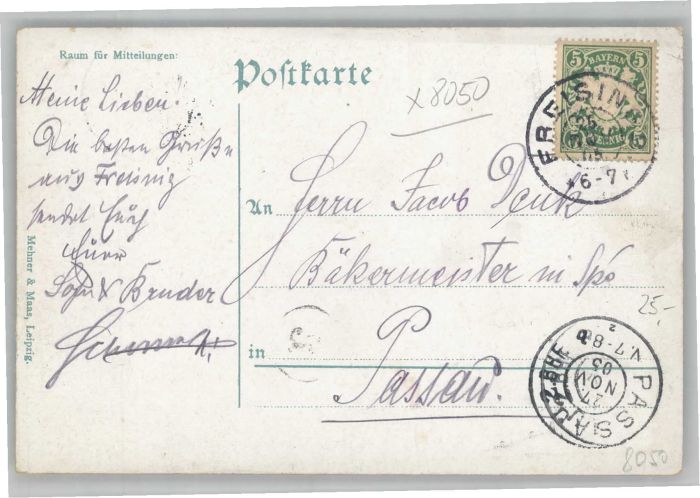 Raum für Mitteilungen:
Postkarte
x 8050
5 BAYERN 5
PFENNIG
FREISING
25
05
6-7
Meine Lieben!
Die besten Grüße
aus Freising
sendet Euch
Euer
Sohn & Bruder
An Herrn Jacob Denk
Bäkermeister in
in Passau.
25.-
PASSAU
V. 7-8
27
NOV
05
Mehner & Maas, Leipzig.
8050